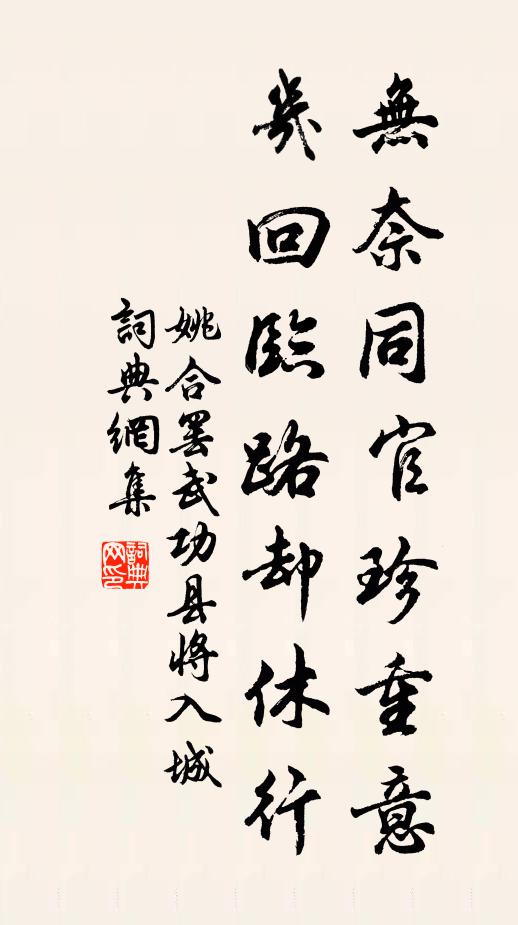 無奈同官珍重意
幾回臨路却休行
姚合罢武功县將入城
詞典網集
詞典网印